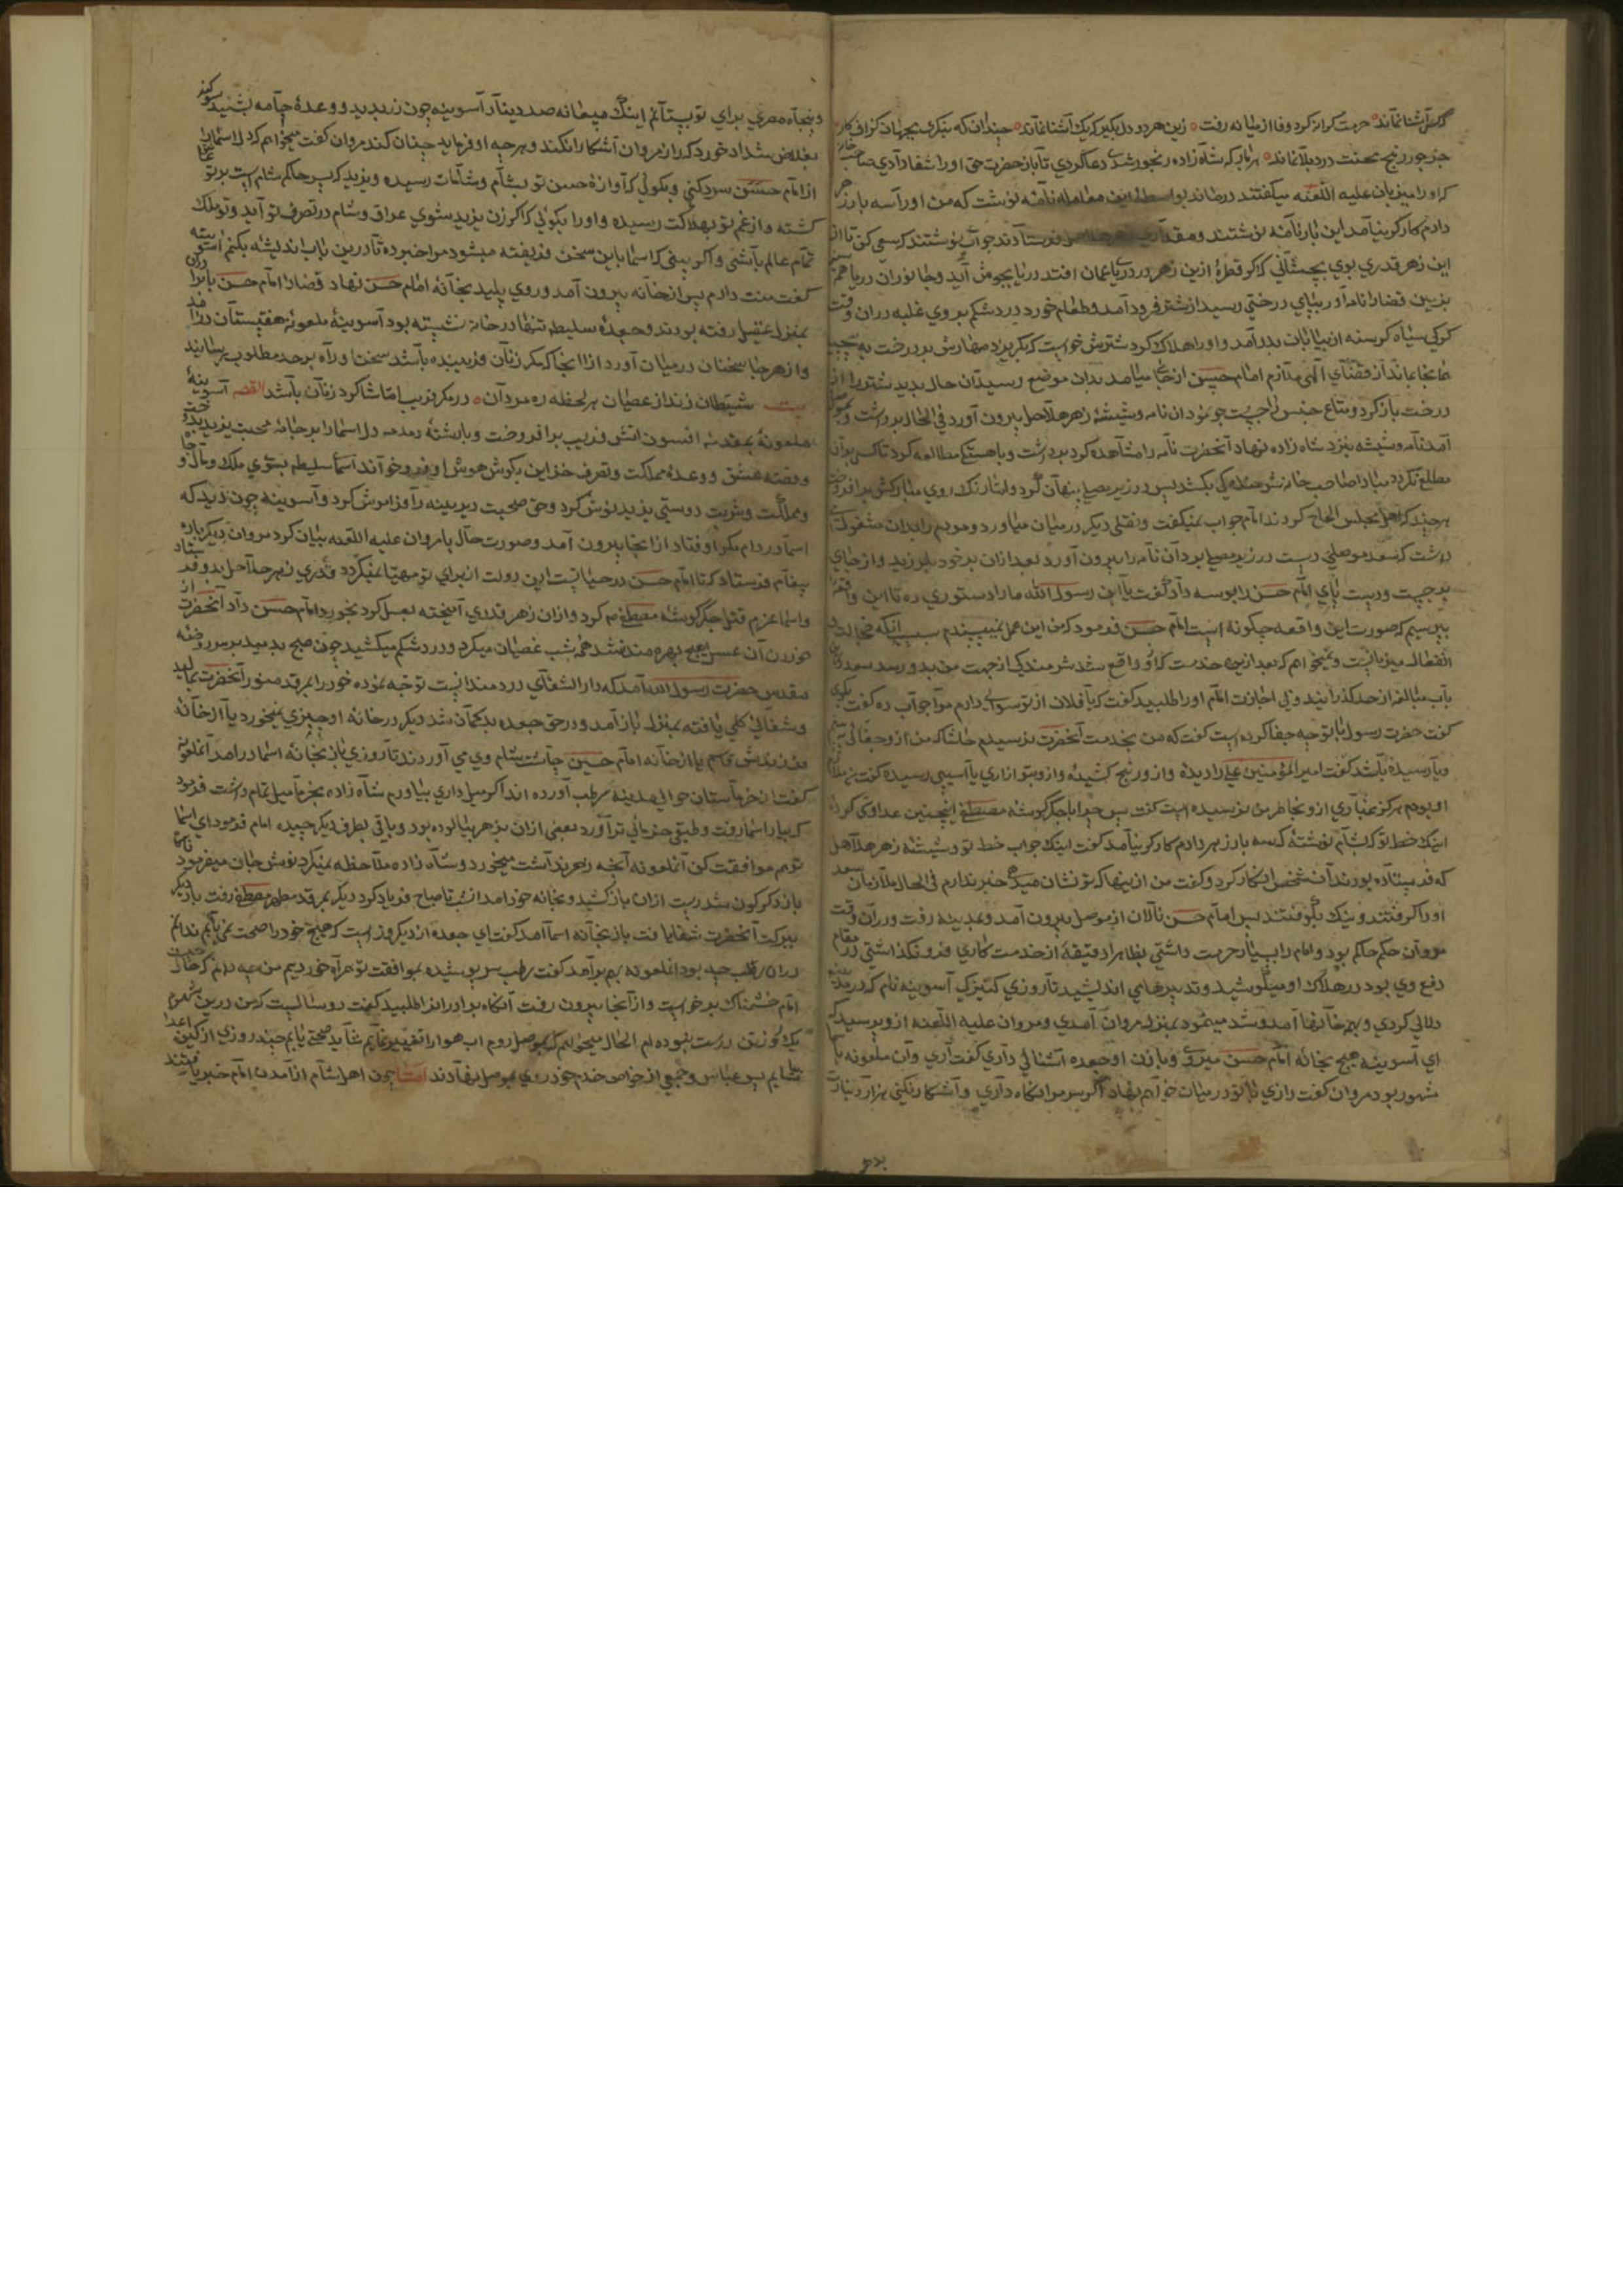 آشنا نماند حرمت کرانه کرد وفا از میانه رفت زین هر دو دل بگیر که یک آشنا نماند چندان که بنگری بجهان گزاف کار
جز جور رنج محنت درد بلا نماند هر بار که شاه زاده رنجور شدی دعا کردی تا باز حضرت حق او را شفا دادی صاحب خانه
که او را میزبان علیه اللعنه میگفتند درماند بواسطه این معامله نامه نوشت که من او را سه بار زهر
دادم کارگر نیامد این بار نامه نوشتند و مقداری زهر هلاهل فرستادند جواب نوشتند که سعی کن تا از
این زهر قدری بوی بچشانی که اگر قطرهٔ ازین زهر در دریای عمان افتد در یا بجوش آید و جانوران دریا همه
بمیرند قضارا نامه‌آور بپای درختی رسید از شتر فرود آمد و طعام خورد درد شکم بر وی غلبه کرد دران وقت
گرگی سیاه گرسنه از بیابان بدر آمد و او را هلاک کرد شترش خواست که بگریزد مهارش بر درخت پیچید
همانجا بماند از قضای الهی ملازم امام حسن از جای میامد بدان موضع رسید آن حال بدید شتر را از
درخت باز کرد و متاع جنس را جست‌جو نمود آن نامه و شیشهٔ زهر هلاهل بیرون آورد فی الحال برداشت و بموصل
آمد نامه و شیشه بنزد شاه زاده نهاد آنحضرت نامه را مشاهده کرد برداشت و باهستگی مطالعه کرد تا کسی بران
مطلع نگردد مبادا صاحب خانه شرمندگی بکشد پس در زیر مصلی پنهان کرد و اما رنگ روی مبارکش برافروخت
هر چند که اهل مجلس الحاح کردند امام جواب نمیگفت و نقلی دیگر در میان میاورد و مردم را بدان مشغول
داشت که سعد موصلی دست در زیر مصلی برد آن نامه را بیرون آورد بعد ازان بر خود بلرزید و از جای
برجست و دست و پای امام حسن را بوسه داد گفت یا ابن رسول الله ما را دستوری ده تا این واقعه
بپرسیم که صورت این واقعه چگونه است امام حسن فرمود که من این عمل نمیپسندم سبب آنکه خجالت و
انفعال میزبانست و نمیخواهم که بعد ازین خدمت که او واقع شد شرمندگی از جهت من بدو رسد سعد درین
باب مبالغه از حد گذرانید ولی اجازت امام او را طلبید گفت که یا فلان از تو سوالی دارم مرا جواب ده گفت بگوی
گفت حضرت رسول با تو چه جفا کرده است گفت که من بخدمت آنحضرت نرسیدم حاشا که من از و جفائی بینم
ویا رسیده باشد گفت امیر المؤمنین علی را دیده و از و رنج کشیده و از و بتو ازاری یا آسیبی رسیده گفت نی ملازم
او بودم هرگز غباری ازو بخاطر من نرسیده است گفت پس چرا با جگر گوشهٔ مصطفی اینچنین عداوتی کرده
اینک خط تو که بشام نوشتهٔ که سه بار زهر دادم کارگر نیامد گفت اینک جواب خط تو و شیشهٔ زهر هلاهل
که فرستاده بودند آن شخص انکار کرد و گفت من ازینها که تو نشان میدهی خبر ندارم فی الحال ملازمان سعد
او را گرفتند و نیک بکوفتند پس امام حسن نالان از موصل بیرون آمد و بمدینه رفت ودران وقت
مروان حکم حاکم بود و امام را بسیار حرمت داشتی بظاهر دقیقهٔ از خدمت‌کاری فرو نگذاشتی در مقام
دفع وی بود در هلاک او میکوشید و تدبیرهای اندیشید تا روزی کنیزکی آسوینه نام که در مدینه
دلالی کردی و بهر خانها آمد و شد مینمود بمنزل مروان آمدی و مروان علیه اللعنه ازو پرسید که
ای آسوینه هیچ بخانه امام حسن میروی و با زن او جعده آشنائی داری گفت آری و آن ملعونه با
مشهور بود مروان گفت رازی با تو در میان خواهم نهاد اگر سر مرا نگاه داری و آشکار نکنی هزار دینار
و پنجاه مصری برای تو بستانم اینک بیعانه صد دینار آسوینه چون زر بدید و وعدهٔ جامه بشنید سوگند
شداد خورد که راز مروان آشکارا نکند و هر چه او فرماید چنان کند مروان گفت میخواهم که دل اسما را
از امام حسن سرد کنی و بگوئی که آوازهٔ حسن تو بشام و شامات رسیده و یزید که پسر حاکم شام است بر تو عاشق
گشته و از غم تو بهلاکت رسیده و او را بگوئی که اگر زن یزید شوی عراق و شام در تصرف تو آید و تو ملکهٔ
تمام عالم باشی و اگر بینی که اسما باین سخن فریفته میشود مرا خبر ده تا درین باب اندیشه بکنم آسوینه
گفت منت دارم پس از خانه بیرون آمد و روی پلید بخانهٔ امام حسن نهاد قضارا امام حسن با برادران
بمنزل عقیل رفته بودند و جعدهٔ سلیطه تنها در خانه نشسته بود آسوینهٔ ملعونه
و از هر جا سخنان در میان آورد از آنجا که مکر زنان فریبنده باشد سخن را راه بر حد مطلوب رسانید
بیت شیطان زند از عصیان هر لحظه ره مردان در مکر فریب اما شاگرد زنان باشد القصه آسوینهٔ
ملعونه بمقدمه افسون آتش فریب برافروخت و باشنهٔ دمدمه دل اسما را بر خیانه محبت یزید پخت
و قصه عشق و وعدهٔ مملکت و تصرف خزاین بگوش هوش او فرو خواند اسمأ سلیطه بسوی ملک و مال و جاه
و مملکت و شربت دوستی یزید نوش کرد و حق صحبت دیرینه را فراموش کرد و آسوینه چون دید که
اسما در دام مکر او فتاد از انجا بیرون آمد و صورت حال با مروان علیه اللعنه بیان کرد مروان دیگر باره
پیغام فرستاد که تا امام حسن در حیاتست این دولت از برای تو مهیا نمیگردد و قدری زهر هلاهل بدو فرستاد
و اسما عزم قتل جگر گوشهٔ مصطفی کرد و ازان زهر قدری آمیخته بعسل کرد بخورد امام حسن داد آنحضرت از
خوردن آن عسل هیچ بهره مند نشد همه شب غصیان میکرد و درد شکم میکشید چون صبح بدمید بر سر روضهٔ
مقدس حضرت رسول الله آمد که دار الشفای دردمندانست توجه نموده خود را بمرقد منور آنحضرت بمالید
و شفائی کلی یافته بمنزل باز آمد و در حق جعده بدگمان شد دیگر در خانهٔ او چیزی نمیخورد یا از خانه
فرزندش قاسم یا از خانهٔ امام حسین چاشت و شام وی می آوردند تا روزی باز بخانهٔ اسما در آمد آن ملعونه
گفت از خرماستان حوالی مدینه رطب آورده اند اگر میل داری بیاورم شاه زاده بخرما میل تمام داشت فرمود
که بیار اسما رفت و طبقی خرمائی تر آورد بعضی ازان بزهر بیالوده بود و باقی بطرف دیگر چیده امام فرمود ای اسما
تو هم موافقت کن آن ملعونه آنچه زهر نداشت میخورد و شاه زاده ملاحظه نمیکرد نوش جان میفرمود ناگاه
باز دگرگون شد دست ازان باز کشید و بخانه خود آمد از شب تا صباح فریاد کرد دیگر بمرقد مطهر مصطفی رفت باز دیگر
ببرکت آنحضرت شفا یافت باز بخانهٔ اسما آمد گفت ای جعده از دیگر روز است که هیچ خود را صحت نمی یابم ندانم
دران رطب چه بود آن ملعونه بهم برآمد گفت رطب سر پوشیده بموافقت تو همراه خوردیم من چه دانم که حال چیست
امام خشمناک برخاست و از آنجا بیرون رفت آنگاه برادران را طلبید گفت دو سالیست که من درین شهر
یک روز تن درست نبوده‌ام الحال میخواهم که بموصل روم آب هوا را تغییر نمایم شاید صحتی یابم چند روزی از کین اعدا
بیاسایم پس عباس و جمعی از خواص خدم خود روی بموصل نهادند اما چون اهل شام از آمدن امام خبر یافتند